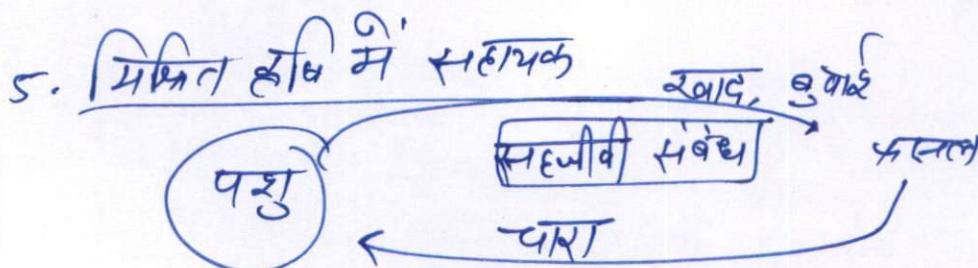 5. मिश्रित कृषि में सहायक
खाद, बुवाई
पशु
सहजीवी संबंध
फसल
चारा